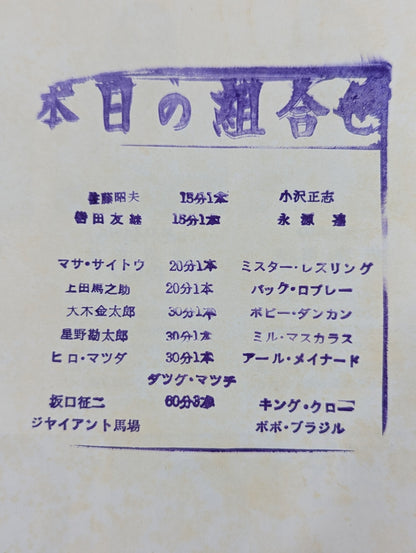 本日の組合せ
佐藤昭夫 15分1本 小沢正志
誉田友継 15分1本 永源遙
マサ・サイトウ 20分1本 ミスター・レスリング
上田馬之助 20分1本 バック・ロブレー
大木金太郎 30分1本 ボビー・ダンカン
星野勘太郎 30分1本 ミル・マスカラス
ヒロ・マツダ 30分1本 アール・メイナード
タツグ・マツチ
坂口征二 60分3本 キング・クロー
ジャイアント馬場 ボボ・ブラジル